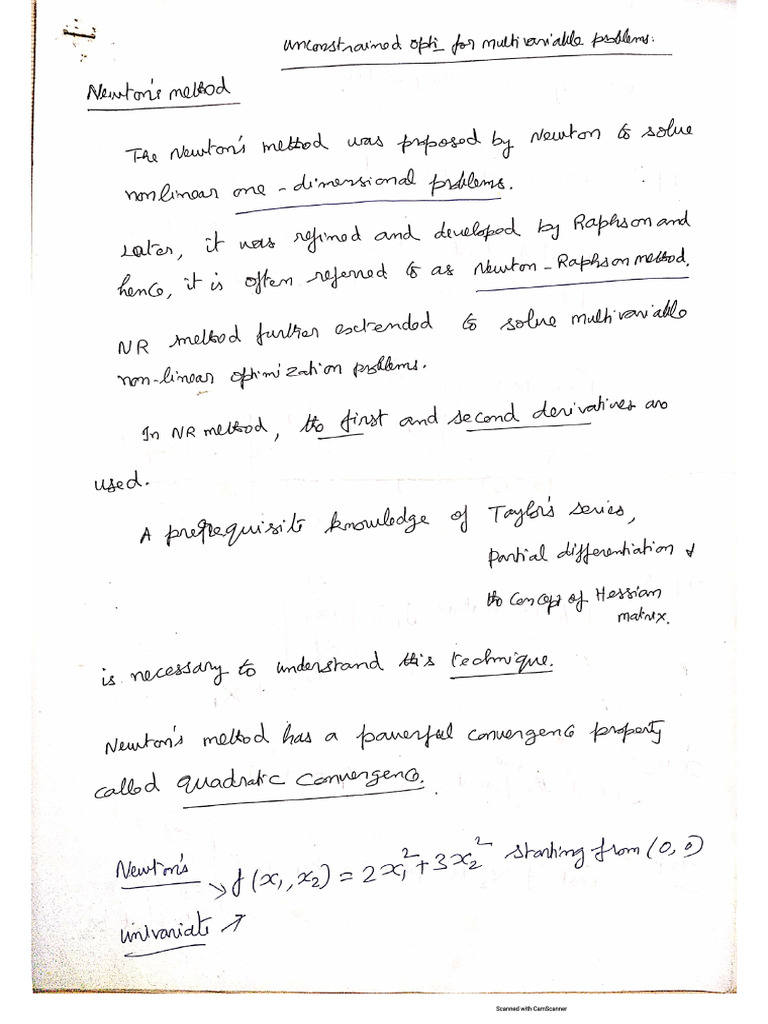 unconstrained opti for multivariable problems.
Newton's method
The Newton's method was proposed by Newton to solve
nonlinear one-dimensional problems.
Later, it was refined and developed by Raphson and
hence, it is often referred to as Newton-Raphson method.
NR method further extended to solve multivariable
non-linear optimization problems.
In NR method, the first and second derivatives are
used.
A prerequisite knowledge of Taylor's series,
partial differentiation &
the concept of Hessian
matrix.
is necessary to understand this technique.
Newton's method has a powerful convergence property
called quadratic convergence.
Newton's → f(x₁, x₂) = 2x₁² + 3x₂² starting from (0, 0)
univariate ↗
Scanned with CamScanner